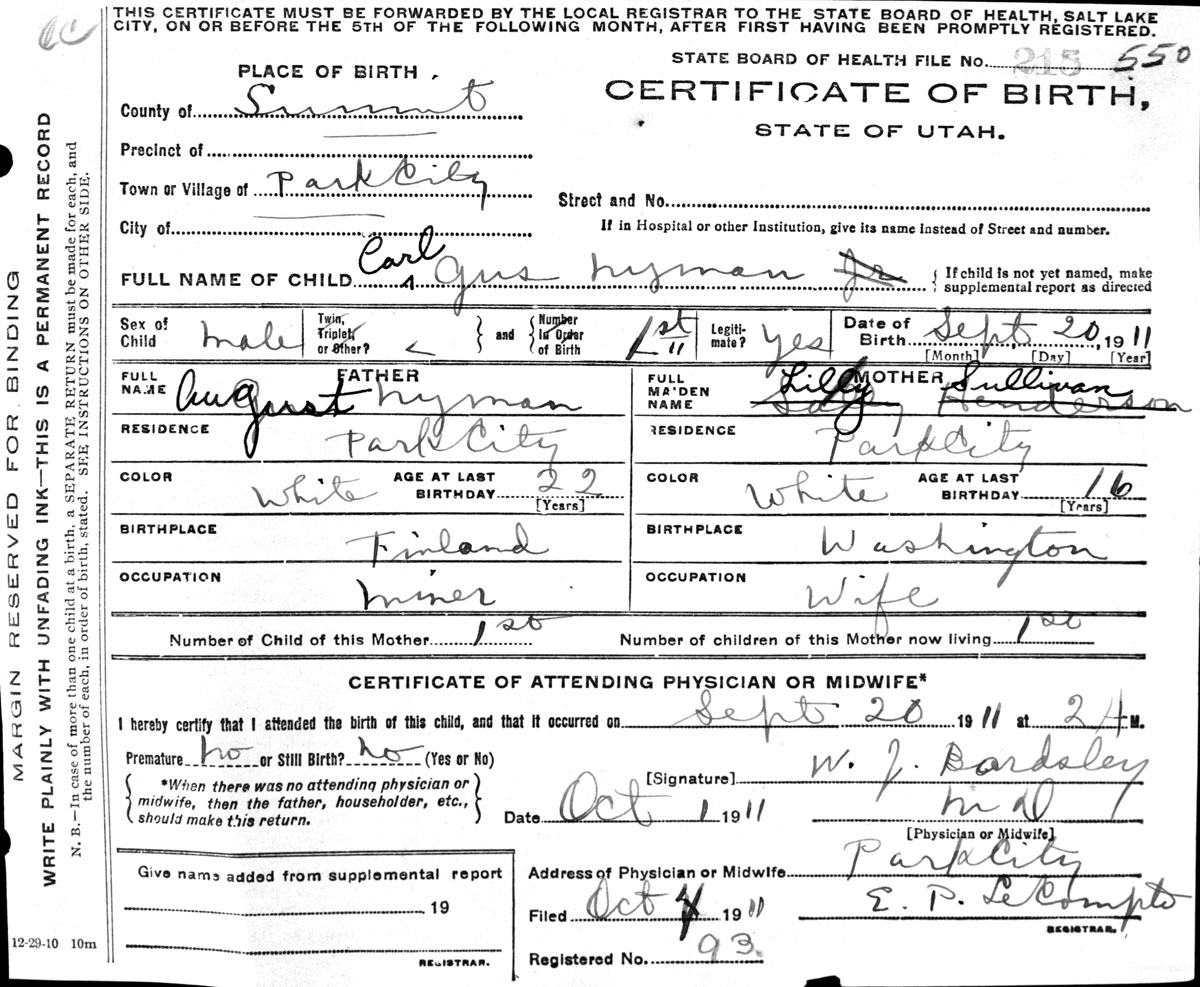 THIS CERTIFICATE MUST BE FORWARDED BY THE LOCAL REGISTRAR TO THE STATE BOARD OF HEALTH, SALT LAKE
CITY, ON OR BEFORE THE 5TH OF THE FOLLOWING MONTH, AFTER FIRST HAVING BEEN PROMPTLY REGISTERED.
STATE BOARD OF HEALTH FILE No. 215 550
PLACE OF BIRTH
CERTIFICATE OF BIRTH,
STATE OF UTAH.
County of Summit
Precinct of
Town or Village of Park City
Street and No.
City of
If in Hospital or other Institution, give its name instead of Street and number.
FULL NAME OF CHILD Carl Gus Nyman Jr
If child is not yet named, make
supplemental report as directed
Sex of Child Male
Twin, Triplet, or Other?
and
Number in Order of Birth 1st
Legiti-mate? Yes
Date of Birth Sept 20, 1911
[Month] [Day] [Year]
FATHER
MOTHER
FULL NAME August Nyman
FULL MAIDEN NAME Lilly Sullivan Henderson
RESIDENCE Park City
RESIDENCE Park City
COLOR White AGE AT LAST BIRTHDAY 22 [Years]
COLOR White AGE AT LAST BIRTHDAY 16 [Years]
BIRTHPLACE Finland
BIRTHPLACE Washington
OCCUPATION Miner
OCCUPATION Wife
Number of Child of this Mother 1st
Number of children of this Mother now living 1st
CERTIFICATE OF ATTENDING PHYSICIAN OR MIDWIFE*
I hereby certify that I attended the birth of this child, and that it occurred on Sept 20 1911 at 2 M.
Premature No or Still Birth? No (Yes or No)
*When there was no attending physician or
midwife, then the father, householder, etc.,
should make this return.
[Signature] W. J. Bardsley
Date Oct 1 1911
M D
[Physician or Midwife]
Address of Physician or Midwife Park City
Filed Oct 4 1911 E. P. LeCompte
REGISTRAR.
Registered No. 93.
Give name added from supplemental report
, 19
REGISTRAR.
12-29-10 10m
MARGIN RESERVED FOR BINDING
WRITE PLAINLY WITH UNFADING INK—THIS IS A PERMANENT RECORD
N. B.—In case of more than one child at a birth, a SEPARATE RETURN must be made for each, and
the number of each, in order of birth, stated. SEE INSTRUCTIONS ON OTHER SIDE.